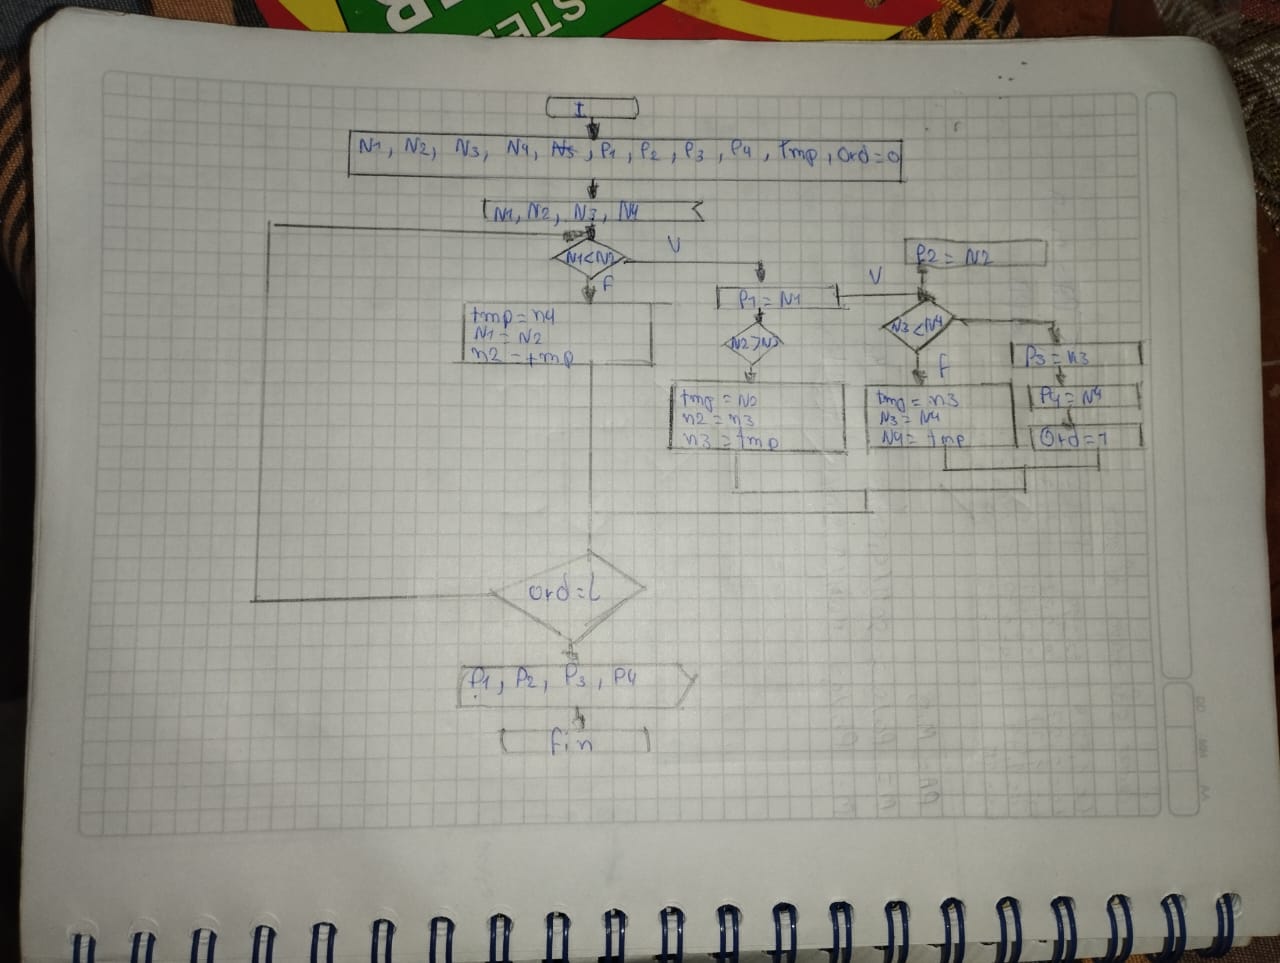 STE
ER
I
N1, N2, N3, N4, N5, P1, P2, P3, P4, tmp, Ord=0
N1, N2, N3, N4
N1<N2
V
F
tmp = n4
N1 = N2
n2 = tmp
P1 = N1
N2>N3
tmp = N2
n2 = n3
n3 = tmp
V
P2 = N2
N3<N4
F
tmp = n3
N3 = N4
N4 = tmp
P3 = n3
P4 = N4
Ord=1
Ord=L
P1, P2, P3, P4
fin